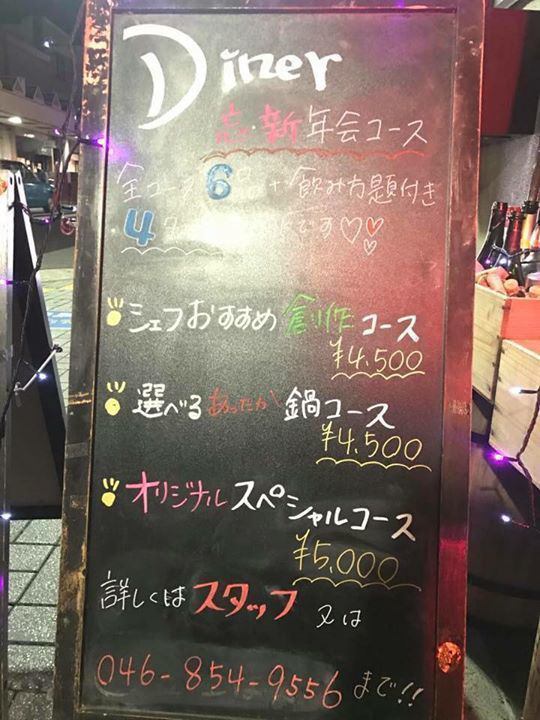 Diner
忘・新年会コース
全コース 6品+飲み方題付き
4 です♡♡♡
シェフおすすめ創作コース
¥4,500
選べるあったか鍋コース
¥4,500
オリジナルスペシャルコース
¥5,000
詳しくはスタッフ又は
046-854-9556まで!!